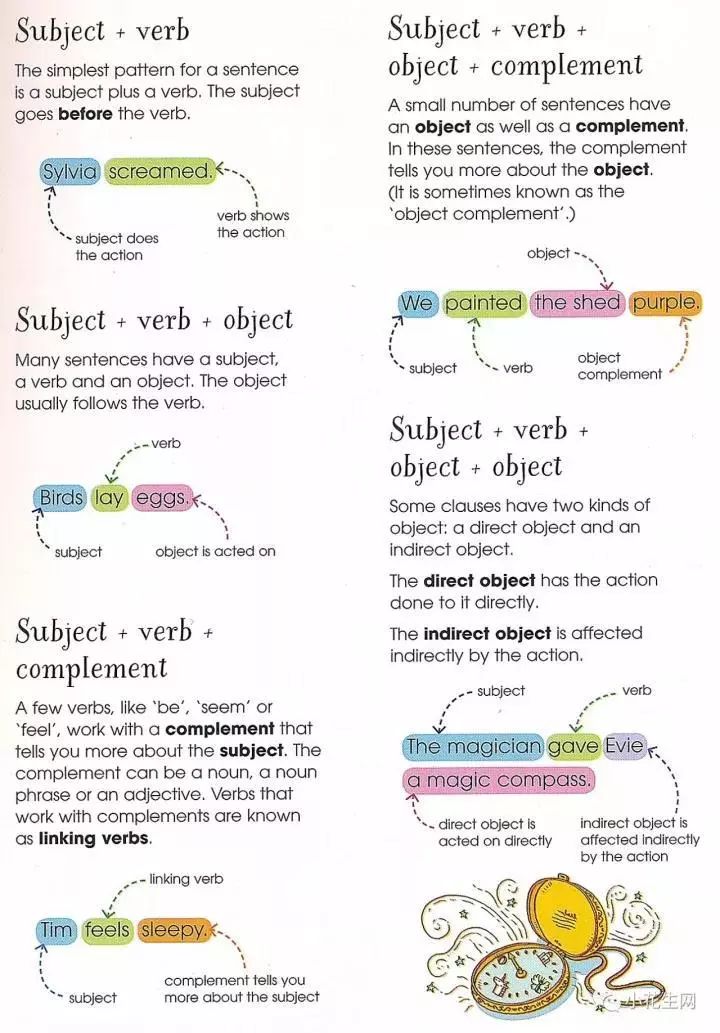 Subject + verb
The simplest pattern for a sentence
is a subject plus a verb. The subject
goes before the verb.
Sylvia screamed.
verb shows
the action
subject does
the action
Subject + verb + object
Many sentences have a subject,
a verb and an object. The object
usually follows the verb.
verb
Birds lay eggs.
subject
object is acted on
Subject + verb +
complement
A few verbs, like 'be', 'seem' or
'feel', work with a complement that
tells you more about the subject. The
complement can be a noun, a noun
phrase or an adjective. Verbs that
work with complements are known
as linking verbs.
linking verb
Tim feels sleepy.
subject
complement tells you
more about the subject
Subject + verb +
object + complement
A small number of sentences have
an object as well as a complement.
In these sentences, the complement
tells you more about the object.
(It is sometimes known as the
'object complement'.)
object
We painted the shed purple.
subject
verb
object
complement
Subject + verb +
object + object
Some clauses have two kinds of
object: a direct object and an
indirect object.
The direct object has the action
done to it directly.
The indirect object is affected
indirectly by the action.
subject
verb
The magician gave Evie
a magic compass.
direct object is
acted on directly
indirect object is
affected indirectly
by the action
小花生网